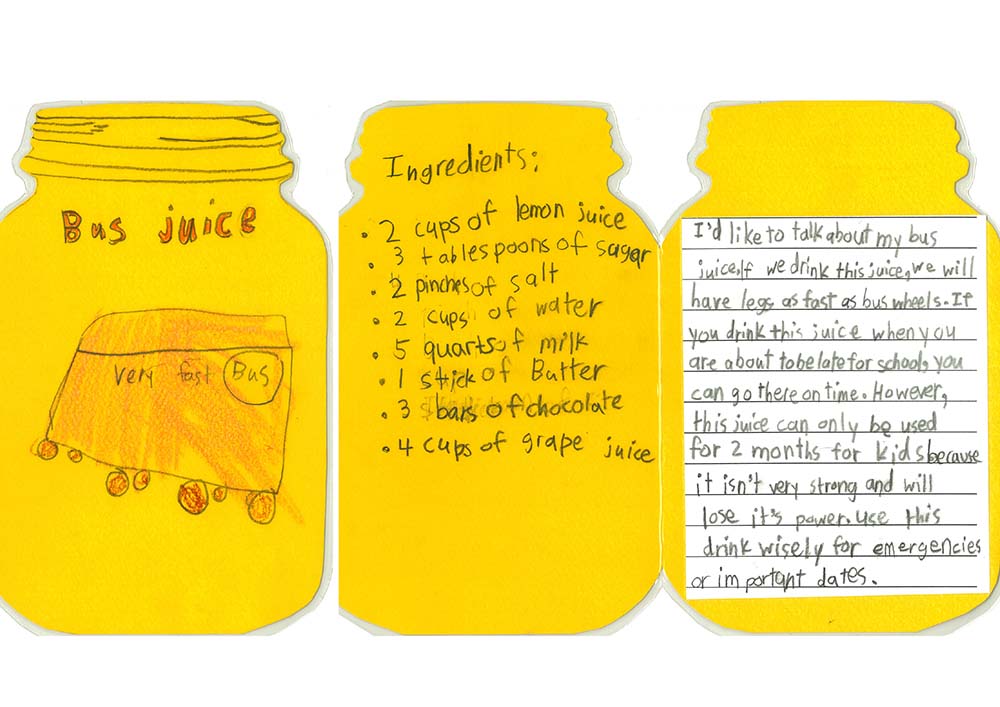 Bus juice
very fast Bus
Ingredients:
• 2 cups of lemon juice
• 3 tablespoons of sagar
• 2 pinches of salt
• 2 cups of water
• 5 quarts of milk
• 1 stick of Butter
• 3 bars of chocolate
• 4 cups of grape juice
I'd like to talk about my bus
juice. If we drink this juice, we will
have legs as fast as bus wheels. If
you drink this juice when you
are about to be late for school, you
can go there on time. However,
this juice can only be used
for 2 months for kids because
it isn't very strong and will
lose it's power. use this
drink wisely for emergencies
or important dates.